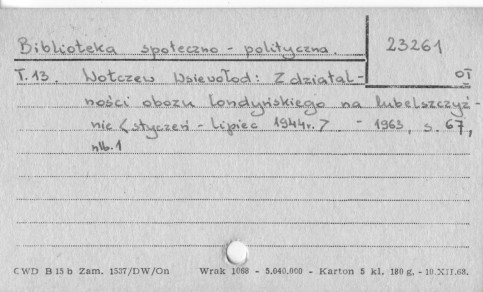 Biblioteka społeczno-polityczna. 23261
T. 13. Wołczew Wsiewołod: Z działal- OI
ności obozu londyńskiego na Lubelszczyź-
nie (styczeń - Lipiec 1944 r.) - 1963, s. 67,
nlb. 1
CWD B 15 b Zam. 1537/DW/On Wrak 1068 - 5.040.000 - Karton 5 kl. 180 g. - 10.XII.68.